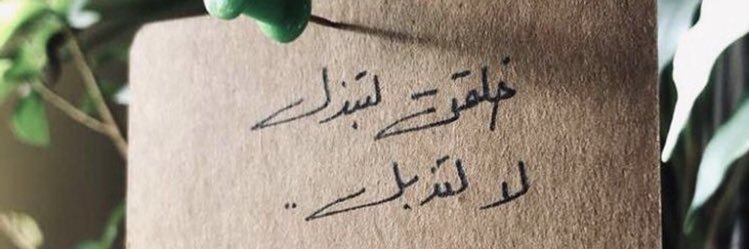 خلقت لتبذل
لا لتذبل ..